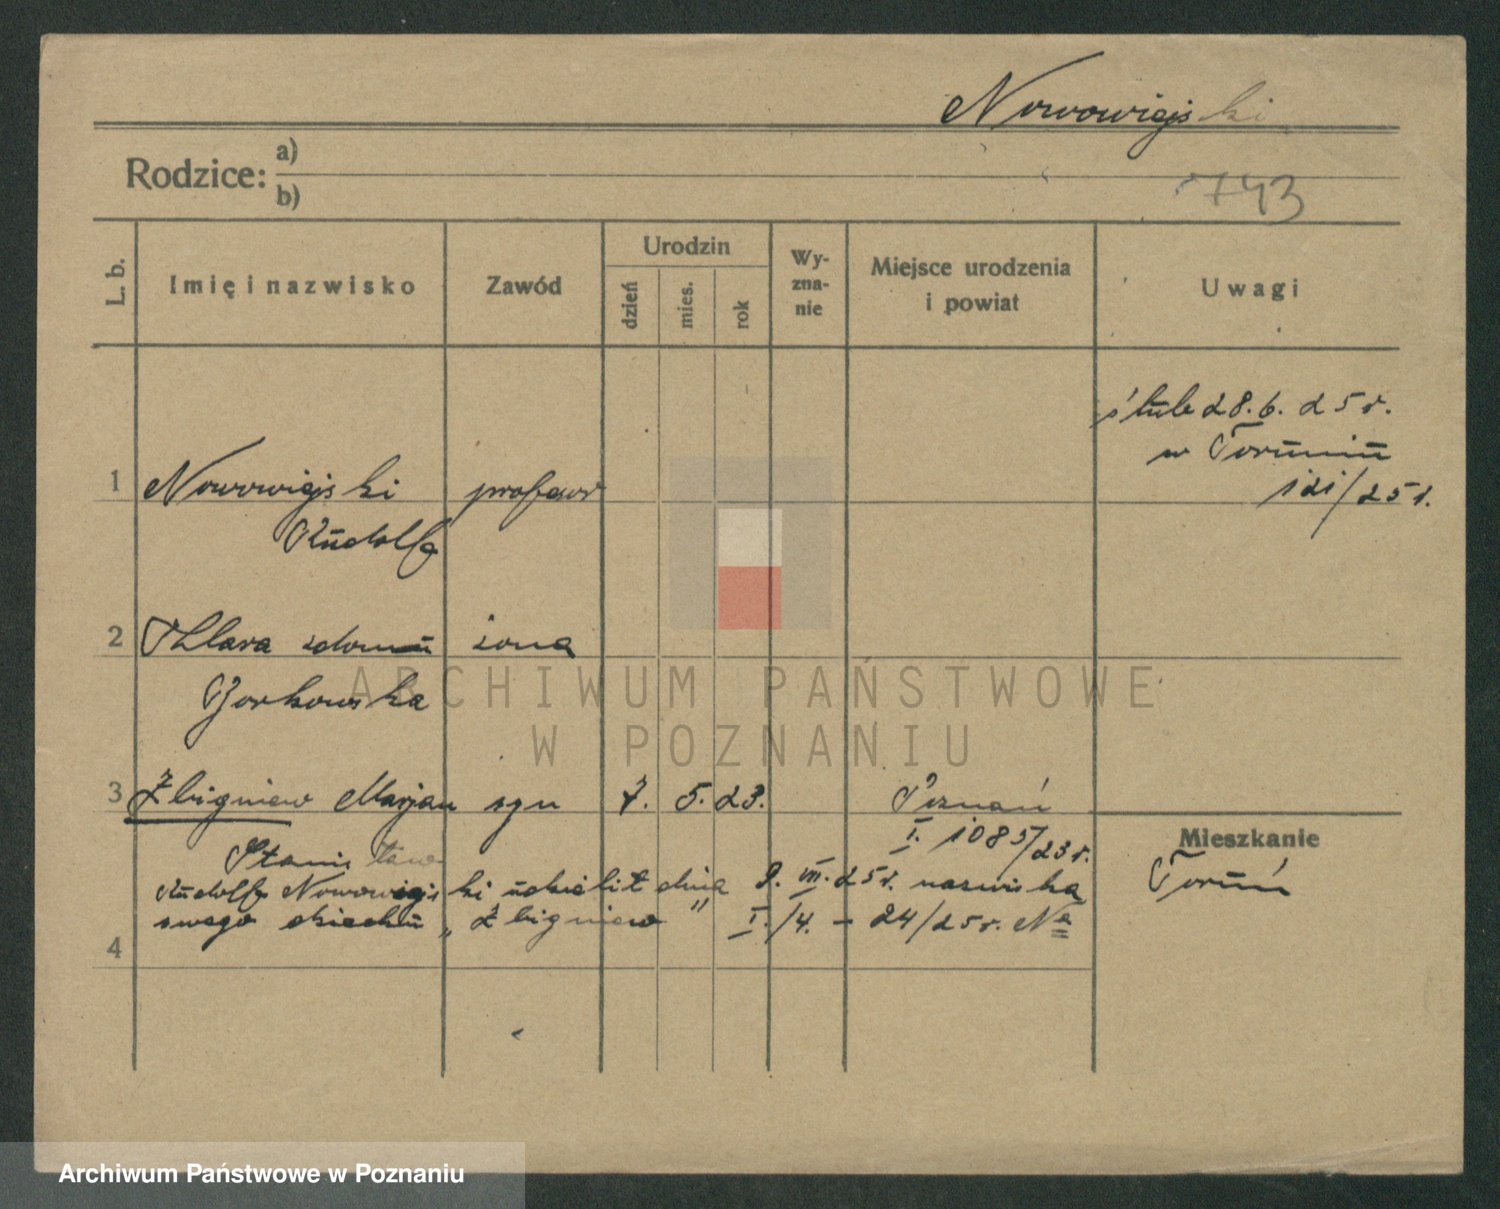 Nowowiejski
Rodzice: a)
b)
743
L. b.
Imię i nazwisko
Zawód
Urodzin
dzień
mies.
rok
Wy-
zna-
nie
Miejsce urodzenia
i powiat
Uwagi
ślub 28.6.25 r.
w Toruniu
121/25 r.
1 Nowowiejski profesor
Rudolf
2 Klara z domu żona
Borkowska
3 Zbigniew Marjan syn 7. 5. 23. Poznań
I. 1085/23 r.
Stanisław
Rudolf Nowowiejski udzielił dnia 9. VII. 25 r. nazwiska
swego dziecku „Zbigniew” I./4. – 24/25 r. No
4
Mieszkanie
Toruń
ARCHIWUM PAŃSTWOWE
W POZNANIU
Archiwum Państwowe w Poznaniu